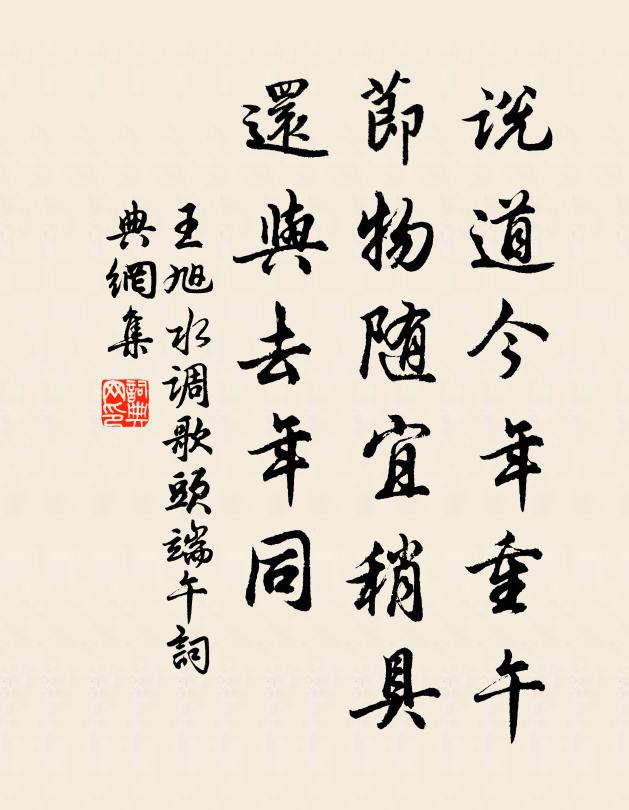 说道今年重午
節物随宜稍具
還與去年同
王旭水调歌頭端午詞
典網集
詞典网印